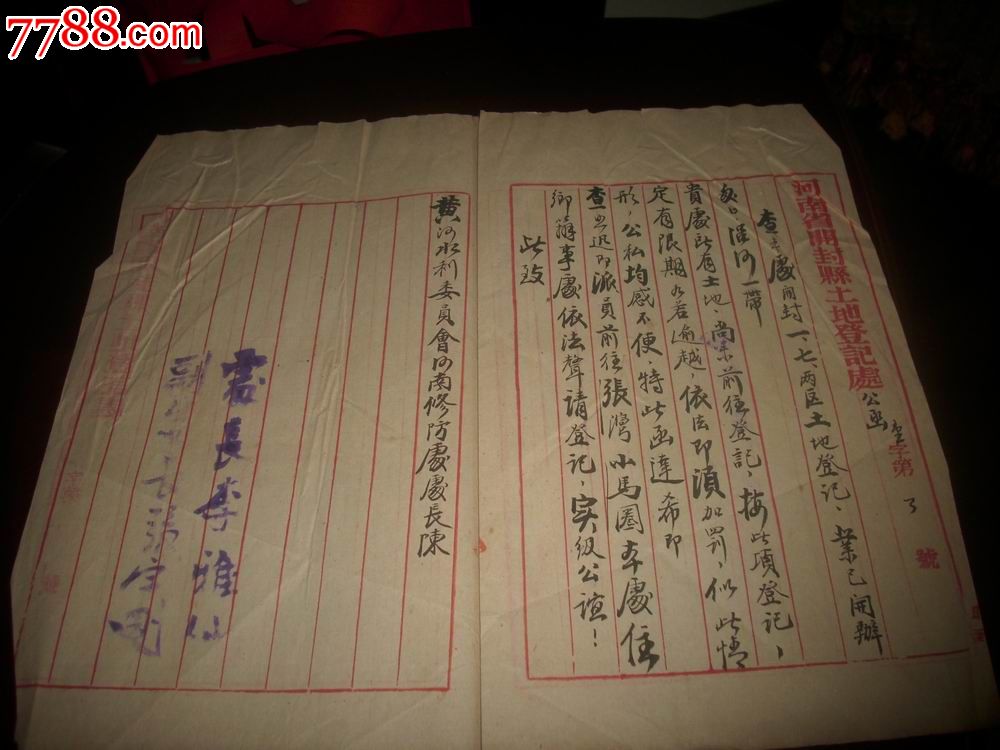 7788.com
河南省開封縣土地登記處公函
字第 号 號
查本處開封一、七、两区土地登記、業已開辦
沿河一帶
貴處所有土地、尚未前往登記，按此項登記，
定有限期，若逾越，依法即須加罰，似此情
形，公私均感不便，特此函達希即
查照迅即派員前往張灣小馬圈本處住
鄉辦事處依法聲請登記，実级公誼！
此致
黄河水利委員會河南修防處處長陳
處長李雅仙
副